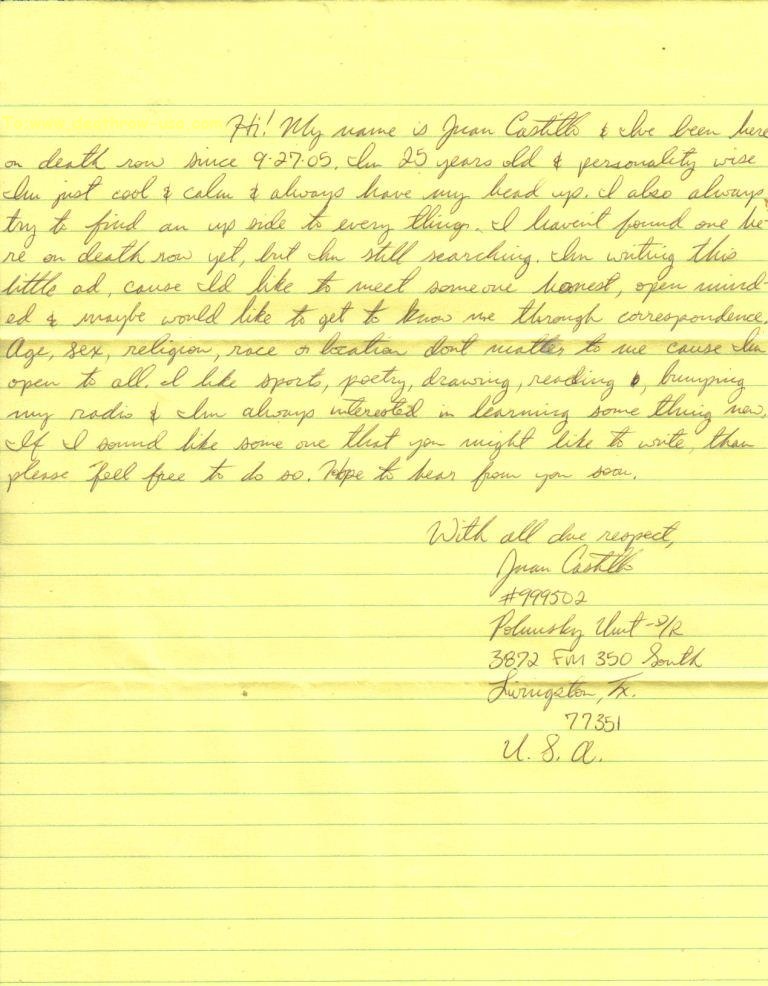 Hi! My name is Juan Castillo & Ive been here
on death row since 9-27-05. Im 25 years old & personality wise
Im just cool & calm & always have my head up. I also always
try to find an up side to every things. I haven't found one he-
re on death row yet, but Im still searching. Im writing this
little ad, cause Id like to meet someone honest, open mind-
ed & maybe would like to get to know me through correspondence.
Age, sex, religion, race or location dont matter to me cause Im
open to all. I like sports, poetry, drawing, reading, bumping
my radio & Im always interested in learning some thing new.
If I sound like some one that you might like to write, than
please feel free to do so. Hope to hear from you soon.
With all due respect,
Juan Castillo
#999502
Polunsky Unit -D/R
3872 FM 350 South
Livingston, Tx.
77351
U. S. A.